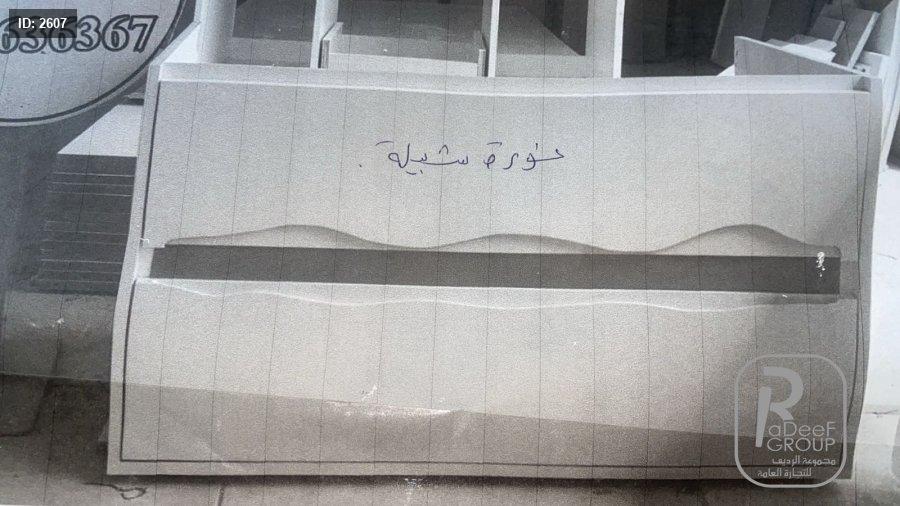 ID: 2607
636367
خورة شبيلة .
RaDeeF
GROUP
مجموعة الرديف
للتجارة العامة